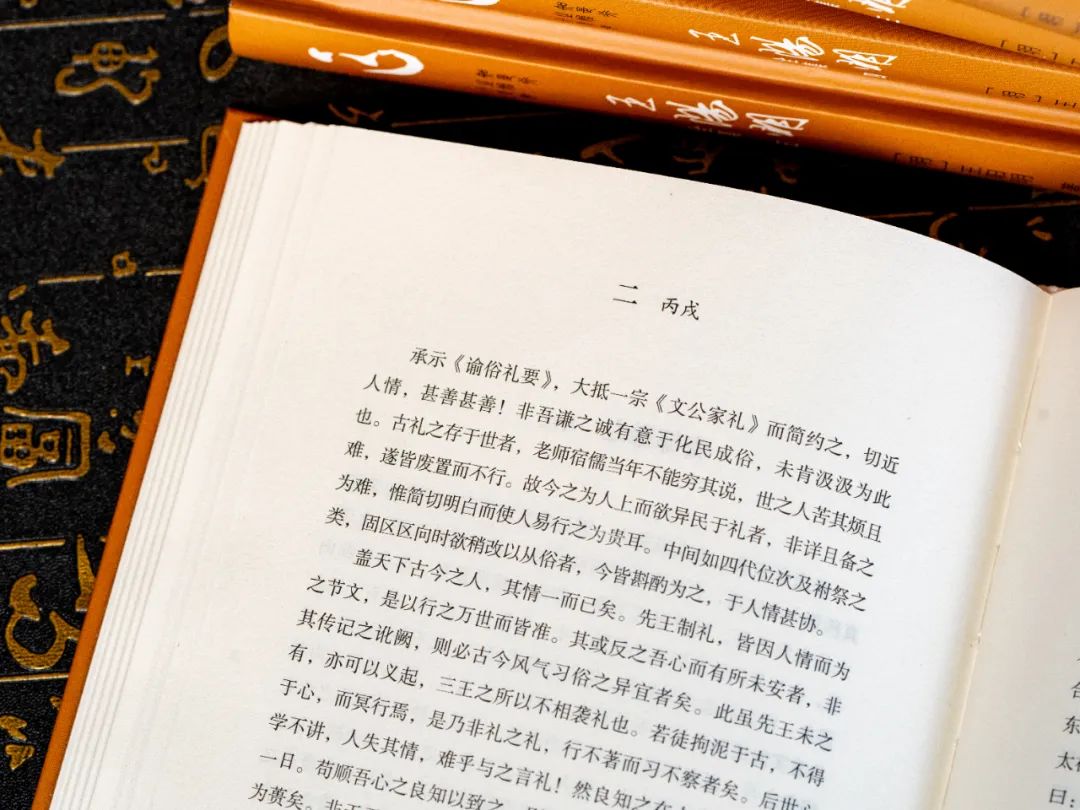 王阳明
王阳明
二 丙戌
承示《谕俗礼要》，大抵一宗《文公家礼》而简约之，切近
人情，甚善甚善！非吾谦之诚有意于化民成俗，未肯汲汲为此
也。古礼之存于世者，老师宿儒当年不能穷其说，世之人苦其烦且
难，遂皆废置而不行。故今之为人上而欲异民于礼者，非详且备之
为难，惟简切明白而使人易行之为贵耳。中间如四代位次及祔祭之
类，固区区向时欲稍改以从俗者，今皆斟酌为之，于人情甚协。
盖天下古今之人，其情一而已矣。先王制礼，皆因人情而为
之节文，是以行之万世而皆准。其或反之吾心而有所未安者，非
其传记之讹阙，则必古今风气习俗之异宜者矣。此虽先王未之
有，亦可以义起，三王之所以不相袭礼也。若徒拘泥于古，不得
于心，而冥行焉，是乃非礼之礼，行不著而习不察者矣。后世心
学不讲，人失其情，难乎与之言礼！然良知之在
一日。苟顺吾心之良知以致之，
为蒉矣。
东
太
日：